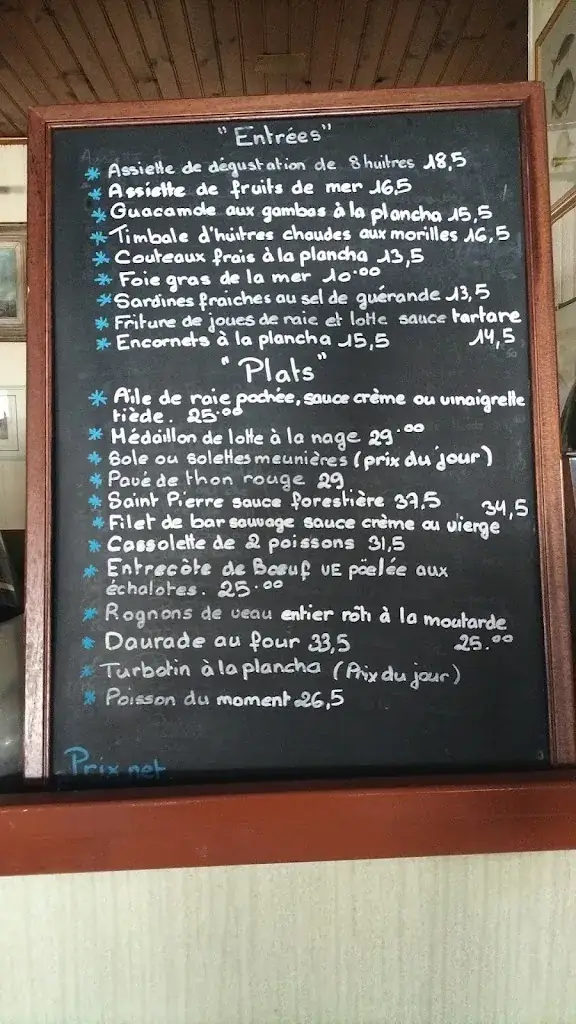 "Entrées"
* Assiette de dégustation de 8 huitres 18,5
* Assiette de fruits de mer 16,5
* Guacamole aux gambas à la plancha 15,5
* Timbale d'huitres chaudes aux morilles 16,5
* Couteaux frais à la plancha 13,5
* Foie gras de la mer 10.00
* Sardines fraiches au sel de guérande 13,5
* Friture de joues de raie et lotte sauce tartare
* Encornets à la plancha 15,5 14,5
"Plats"
* Aile de raie pochée, sauce crème ou vinaigrette
tiède. 25.00
* Médaillon de lotte à la nage 29.00
* Sole ou solettes meunières (prix du jour)
* Pavé de thon rouge 29
* Saint Pierre sauce forestière 37,5 34,5
* Filet de bar sauvage sauce crème ou vierge
* Cassolette de 2 poissons 31,5
* Entrecôte de Bœuf VE pöelée aux
échalotes. 25.00
* Rognons de veau entier rôti à la moutarde
* Daurade au four 33,5 25.00
* Turbotin à la plancha (Prix du jour)
* Poisson du moment 26,5
Prix net